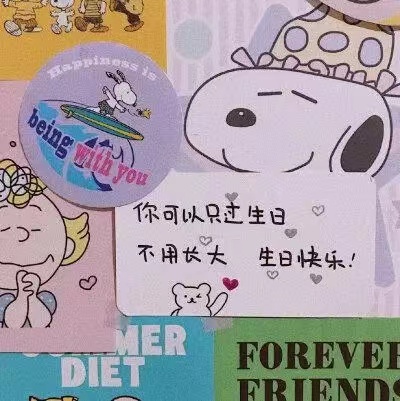 Happiness is
being with you
你可以只过生日
不用长大 生日快乐!
SUMMER
DIET
FOREVER
FRIENDS